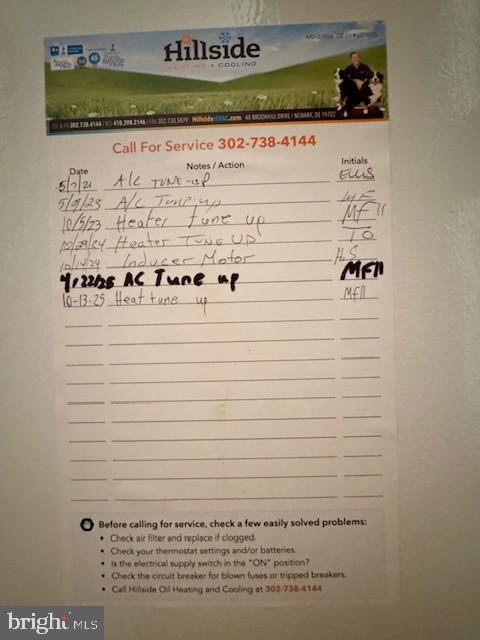 Hillside
HEATING + COOLING
302.738.4144 410.398.2146 302.738.5879 HillsideHVAC.com 40 BROOKHILL DRIVE / NEWARK, DE 19702
Call For Service 302-738-4144
Date Notes / Action Initials
5/7/21 A/C TUNE-UP ELLIS
5/9/23 A/C Tune-up
10/5/23 Heater tune up MF11
Heater TUNE UP TO
Inducer Motor H.S
4/22/25 AC Tune up MF11
10-13-25 Heat tune up MF11
Before calling for service, check a few easily solved problems:
• Check air filter and replace if clogged.
• Check your thermostat settings and/or batteries.
• Is the electrical supply switch in the "ON" position?
• Check the circuit breaker for blown fuses or tripped breakers.
• Call Hillside Oil Heating and Cooling at 302-738-4144
bright MLS